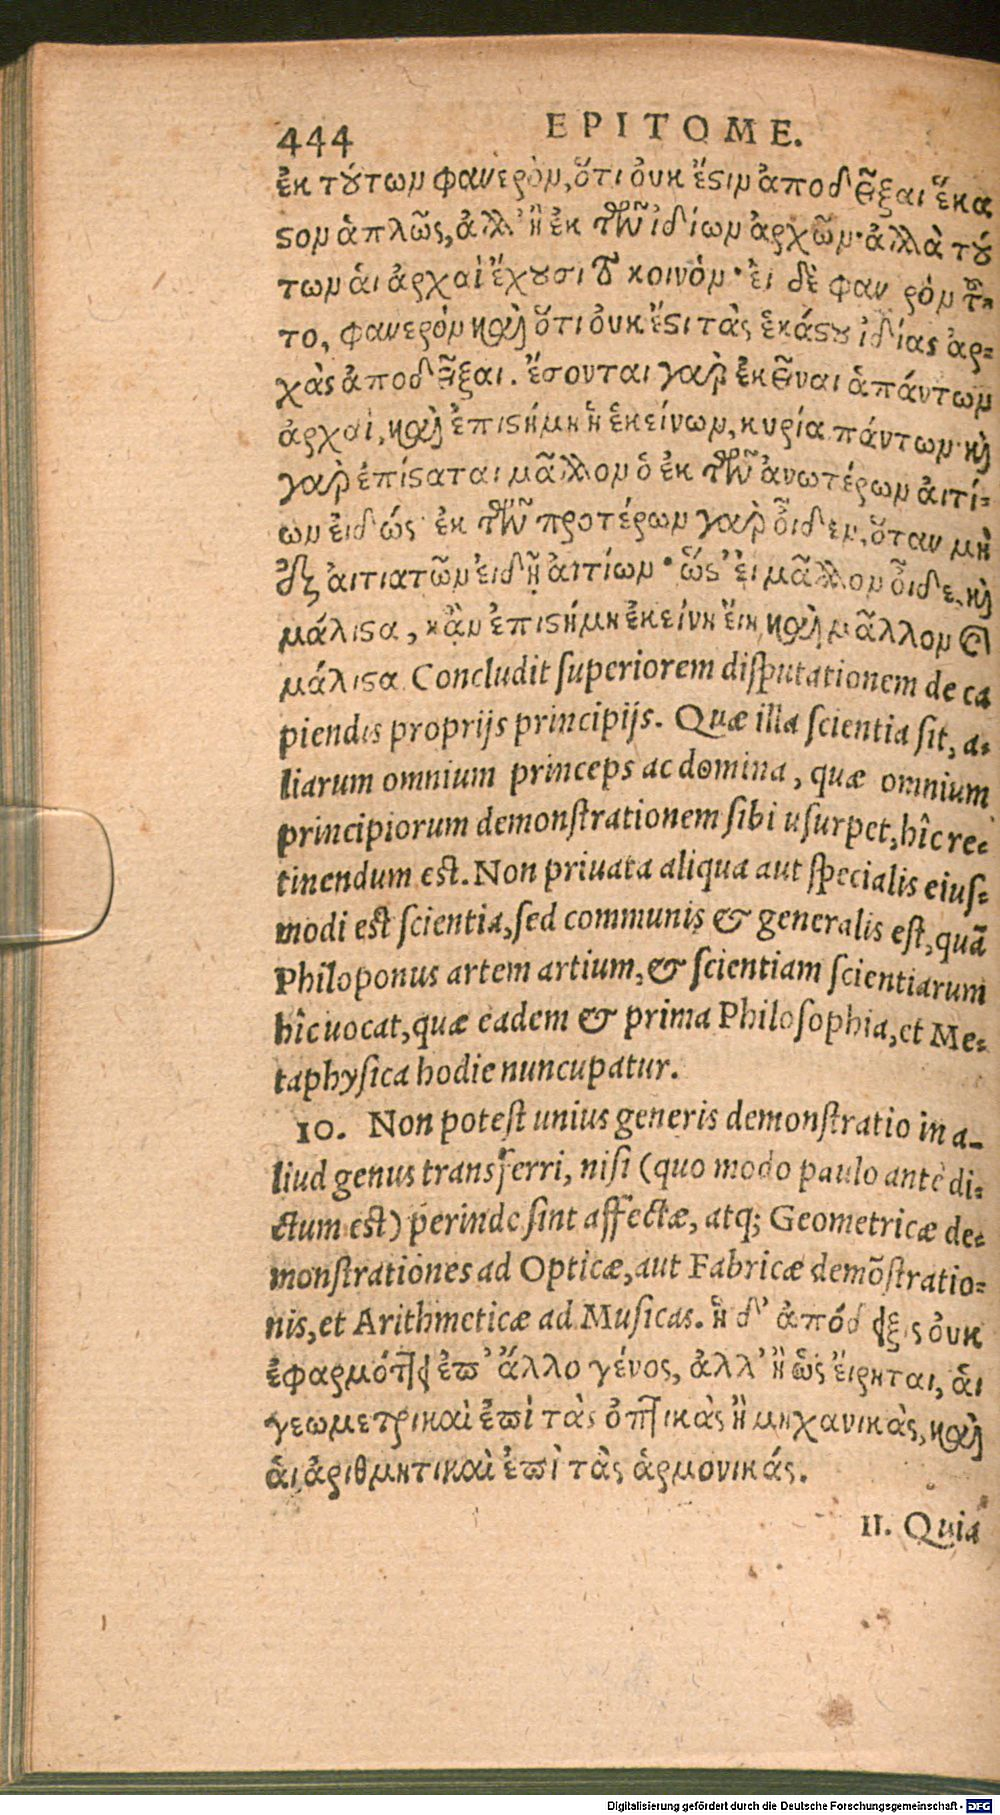 444 EPITOME.
ἐκ τούτων φανερὸν, ὅτι ὀυκ ἔστιν ἀποδεῖξαι ἕκα
στον ἁπλῶς, ἀλλ' ἢ ἐκ τῶν ἰδίων ἀρχῶν· ἀλλὰ τού
των ἁι ἀρχαὶ ἔχουσι τὸ κοινόν· ἐι δὲ φανερὸν τοῦ-
το, φανερὸν καὶ ὅτι ὀυκ ἔστι τὰς ἑκάστου ἰδίας ἀρ-
χὰς ἀποδεῖξαι. ἔσονται γαρ ἐκεῖναι ἁπάντων
ἀρχαὶ, καὶ ἐπιστήμη ἡ ἐκείνων, κυρία πάντων· καὶ
γαρ ἐπίσταται μᾶλλον ὁ ἐκ τῶν ἀνωτέρων ἀιτί-
ων ἐιδώς· ἐκ τῶν προτέρων γαρ ὀῖδεν, ὅταν μὴ
ἐξ ἀιτιατῶν ἐιδῇ ἀιτίων· ὥστ' ἐι μᾶλλον ὀῖδε, καὶ
μάλιστα, κἂν ἐπιστήμη ἐκείνη ἔιη, καὶ μᾶλλον καὶ
μάλιστα. Concludit superiorem disputationem de ca
piendis proprijs principijs. Quæ illa scientia sit, a-
liarum omnium princeps ac domina, quæ omnium
principiorum demonstrationem sibi usurpet, hîc re-
tinendum est. Non priuata aliqua aut specialis eius-
modi est scientia, sed communis & generalis est, quã
Philoponus artem artium, & scientiam scientiarum
hîc uocat, quæ eadem & prima Philosophia, et Me-
taphysica hodie nuncupatur.
10. Non potest unius generis demonstratio in a-
liud genus transferri, nisi (quo modo paulo antè di-
ctum est) perinde sint affectæ, atq; Geometricæ de-
monstrationes ad Opticæ, aut Fabricæ demõstratio-
nis, et Arithmeticæ ad Musicas. ἡ δ' ἀπόδειξις ὀυκ
ἐφαρμόττει ἐπ' ἄλλο γένος, ἀλλ' ἢ ὡς ἔιρηται, ἁι
γεωμετρικαὶ ἐπὶ τὰς ὀπτικὰς ἢ μηχανικὰς, καὶ
ἁι ἀριθμητικαὶ ἐπὶ τὰς ἁρμονικάς.
11. Quia
Digitalisierung gefördert durch die Deutsche Forschungsgemeinschaft - DFG